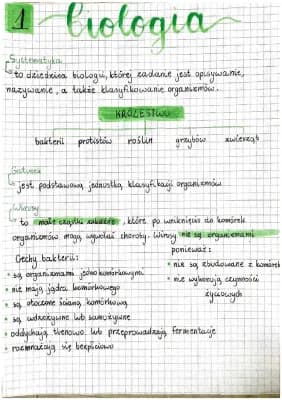 1 biologia
Systematyka
to dziedzina biologii, której zadanie jest opisywanie,
nazywanie, a także klasyfikowanie organizmów.
KRÓLESTWO
bakterii protistów roślin grzybów zwierząt
Gatunek
jest podstawową jednostką klasyfikacji organizmów
Wirusy
to małe cząstki zakaźne, które po wniknięciu do komórek
organizmów mogą wywołać choroby. Wirusy nie są organizmami
ponieważ:
Cechy bakterii:
• nie są zbudowane z komórek
• są organizmami jednokomórkowymi
• nie wykonują czynności
życiowych
• nie mają jądra komórkowego
• są otoczone ścianą komórkową
• są cudzożywne lub samożywne
• oddychają tlenowo lub przeprowadzają fermentację
• rozmnażają się bezpłciowo